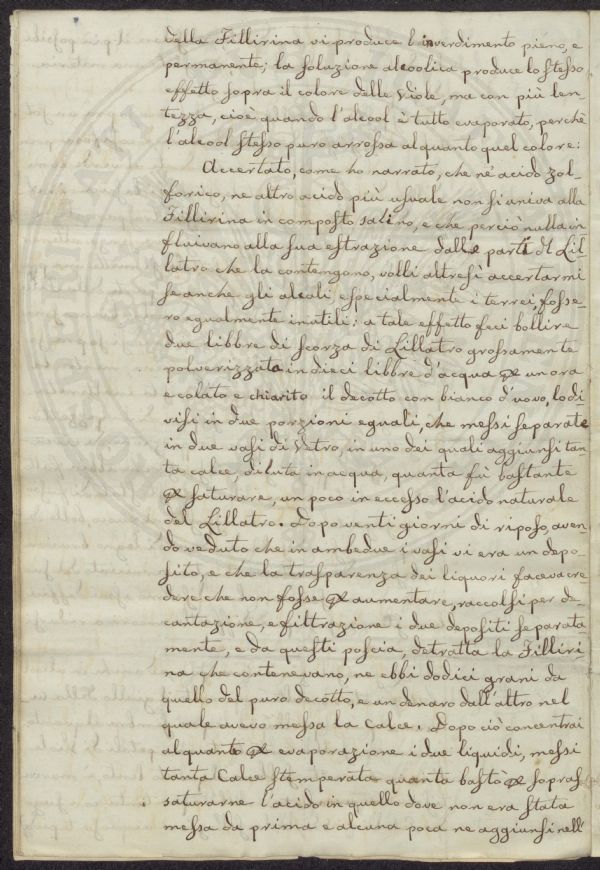 della Fillirina vi produce l'inverdimento pieno, e
permanente; la soluzione alcoolica produce lo stesso
effetto sopra il colore delle Viole, ma con più len-
tezza, cioè quando l'alcool è tutto evaporato, perchè
l'alcool stesso puro arrossa alquanto quel colore:
Accertato, come ho narrato, che ne acido zol-
forico, ne altro acido più usuale non si univa alla
Fillirina in composto salino, e che perciò nulla in
fluivano alla sua estrazione dalle parti del Lil-
latro che la contengono, volli altresì accertarmi
se anche gli alcali, especialmente i terrei, fosse-
ro egualmente inutili; a tale effetto feci bollire
due libbre di scorza di Lillatro grossamente
polverizzata in dieci libbre d'acqua per un ora
e colato e chiarito il decotto con bianco d'uovo, lo di
visi in due porzioni eguali, che messi separate
in due vasi di Vetro, in uno dei quali aggiunsi tan-
ta calce, diluta in acqua, quanta fù bastante
per saturare, un poco in eccesso l'acido naturale
del Lillatro. Dopo venti giorni di riposo, aven-
do veduto che in ambedue i vasi vi era un depo-
sito, e che la trasparenza dei liquori faceva cre
dere che non fosse per aumentare, raccolsi per de-
cantazione, e filtrazione i due depositi separata-
mente, e da questi poscia, detratta la Filliri-
na che contenevano, ne ebbi dodici grani da
quello del puro decotto, e un denaro dall'altro nel
quale avevo messa la Calce. Dopo ciò concentrai
alquanto per evaporazione i due liquidi, messi
tanta Calce stemperata quanta bastò per sopras
saturarne l'acido in quello dove non era stata
messa da prima e alcuna poca ne aggiunsi nell'